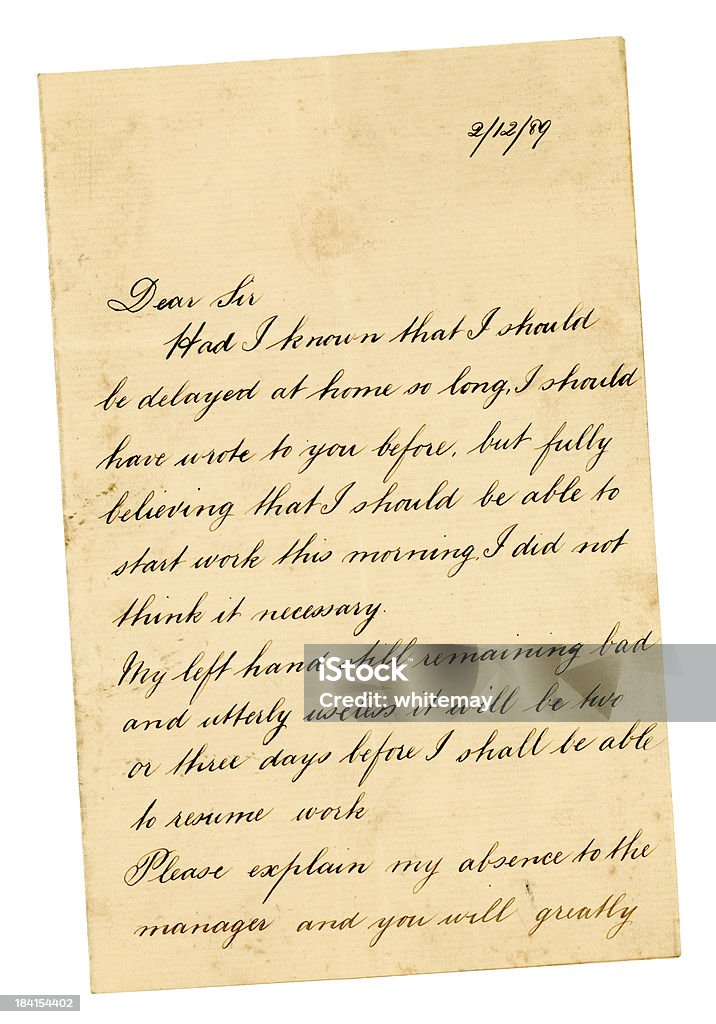 2/12/89
Dear Sir
Had I known that I should
be delayed at home so long, I should
have wrote to you before, but fully
believing that I should be able to
start work this morning, I did not
think it necessary.
My left hand still remaining bad
and utterly useless it will be two
or three days before I shall be able
to resume work
Please explain my absence to the
manager and you will greatly
iStock
Credit: whitemay
184154402